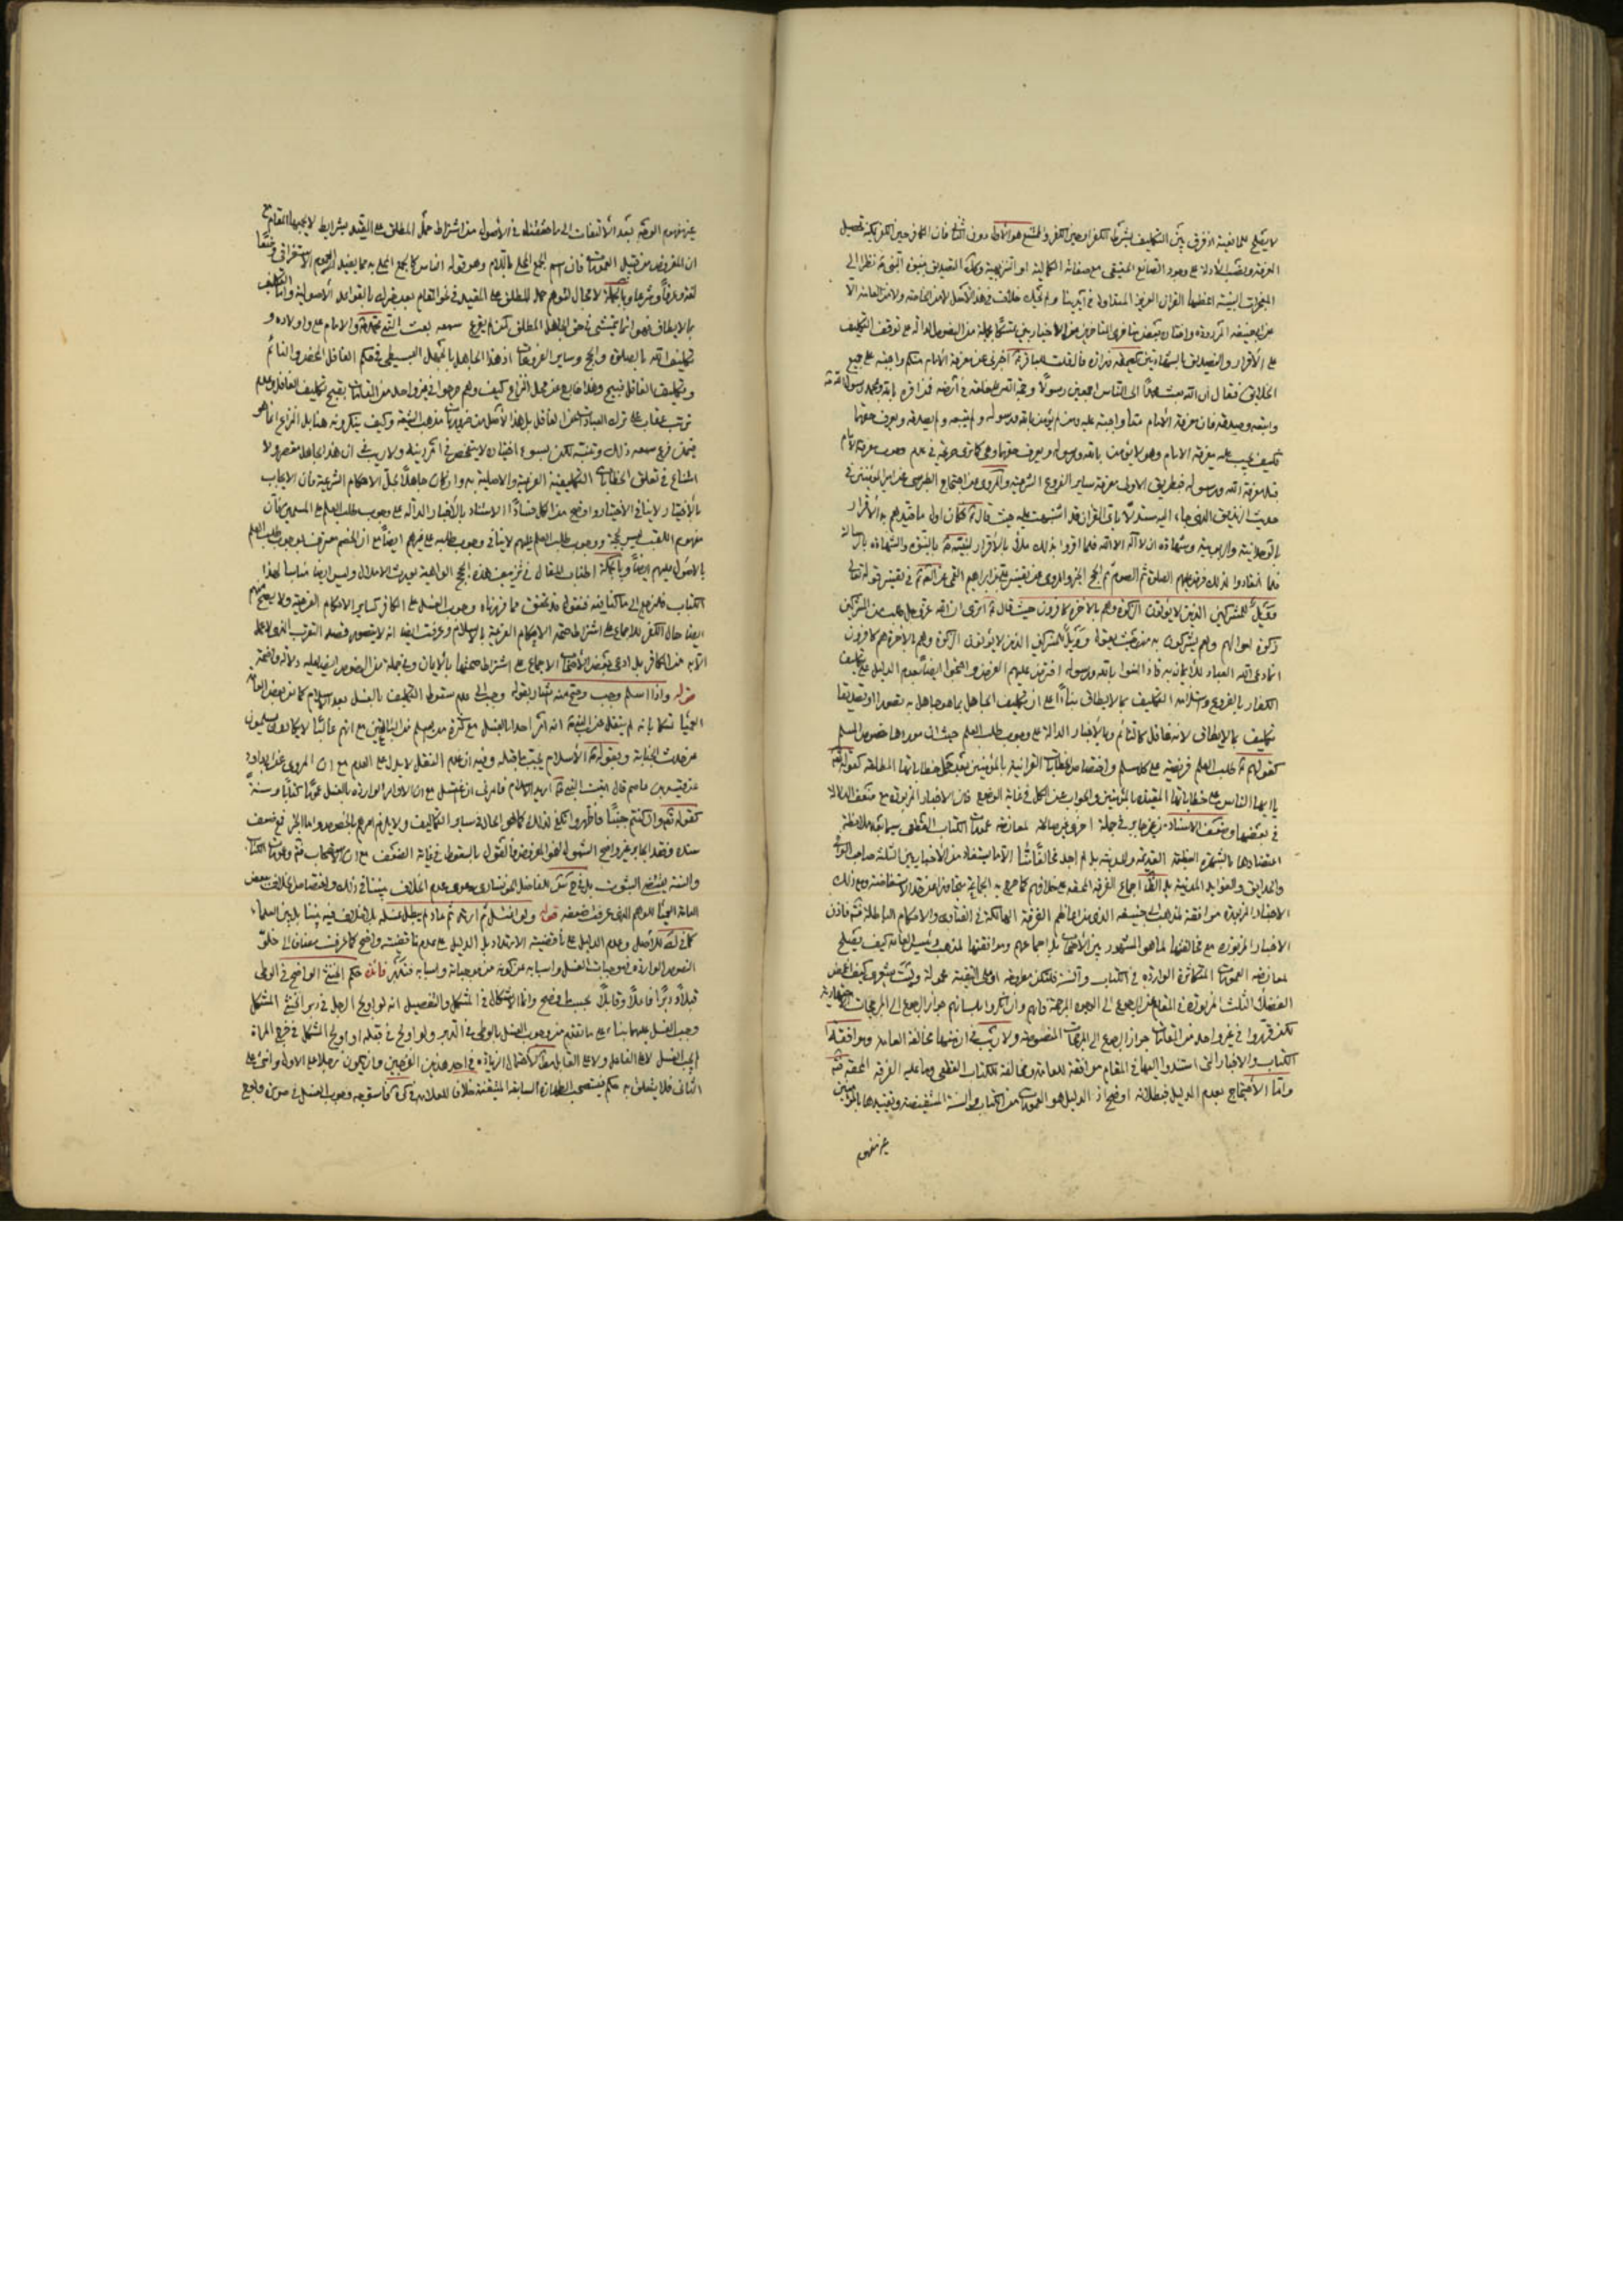 لا يصلح للمانعية اذ فرق بين التكليف بشرط الكفر او حين الكفر والممتنع هو الأول دون الثاني فان الكافر حين الكفر يمكنه تحصيل
المعرفة ونصب الأدلة على وجود الصانع الحقيقي مع صفاته الكمالية او التنزيهية وكذا التصديق بنبوة النبي نظرا الى
المعجزات البينة اعظمها القران العزيز المتداول في ايدينا ولم يحك خلاف في هذا الأصل لا من الخاصة ولا من العامة الا
عن ابي حنيفة واختاره بعض متاخري المتاخرين من الاخباريين متمسكا بجملة من النصوص الدالة على توقف التكليف
على الأقرار والتصديق بالشهادتين كصحيحة زرارة قال قلت للباقر اخبرني عن معرفة الامام منكم واجبة على جميع
الخلايق فقال ان الله بعث محمدا الى الناس اجمعين رسولا وحجة لله على خلقه في أرضه فمن امن بالله وبمحمد رسول الله
واتبعه وصدقه فان معرفة الأمام منا واجبة عليه ومن لم يؤمن بالله ورسوله ولم يتبعه ولم يصدقه ويعرف حقهما
فكيف يجب عليه معرفة الامام وهو لا يؤمن بالله ورسوله ويعرف حقهما وهي كما ترى صريحة في عدم وجوب معرفة الأمام
قبل معرفة الله ورسوله فبطريق الاولى معرفة ساير الفروع الشرعية والمروي عن احتجاج الطبرسي عن امير المؤمنين في
حديث الزنديق الذي جاء اليه مستدلا باي القران قد اشتبهت عليه حيث قال فكان اول ما قيدهم به الأقرار
بالوحدانية والربوبية وشهادة ان لا اله الا الله فلما اقروا بذلك تلاه بالأقرار لنبيه بالنبوة والشهادة بالرسالة
فلما انقادوا لذلك فرض عليهم الصلوة ثم الصوم ثم الحج الخبر والمروي عن تفسير علي بن ابراهيم القمي في تفسير قوله تعالى
فويل للمشركين الذين لا يؤتون الزكوة وهم بالاخرة كافرون حيث قال اترى ان الله عز وجل طلب من المشركين
زكوة اموالهم وهم يشركون به حيث يقول وويل للمشركين الذين لا يؤتون الزكوة وهم بالاخرة هم كافرون
انما دعى الله العباد للأيمان به فاذا امنوا بالله ورسوله افترض عليهم الفرض واحتجوا ايضا بعدم الدليل على تكليف
الكفار بالفروع وبأستلزامه التكليف بما لا يطاق بناءا على ان تكليف الجاهل بما هو جاهل به تصورا او تصديقا
تكليف بما لا يطاق لانه غافل كالنائم وبالأخبار الدالة على وجوب طلب العلم حيث ان موردها خصوص المسلم
كقولهم طلب العلم فريضة على كل مسلم واختصاص الخطابات القرانية بالمؤمنين بعد حمل خطاباتها المطلقة كقوله تعالى
يا ايها الناس على خطاباتها المقيدة بالمؤمنين والجواب عن الكل في غاية الوضوح فان الاخبار المزبورة مع ضعف الدلالة
في بعضها وضعف الاسناد من غير جابر في جملة اخرى غير صالحة لمعارضة عمومات الكتاب القطعي سيما بعد ملاحظة
اعتضادها بالشهرة العظيمة القديمة والحديثة بل لم اجد مخالفا منا الا ما يستفاد من الأخباريين الثلثة صاحب الوافي
والحدايق والفوايد المدنية بل الظاهر اجماع الفرقة المحقة على خلافهم كما صرح به الجماعة متجاوزا عن حد الاستفاضة ومع ذلك
الاخبار المزبورة موافقة لمذهب ابي حنيفة الذي هو من اعاظم الفرقة الهالكة في الفتاوى والاحكام الباطلة فاذن
الاخبار المزبورة مع مخالفتها لما هو المشهور بين الأصحاب بل اجماعهم وموافقتها لمذهب رئيس العامة كيف يصلح
لمعارضة العمومات المتكاثرة الواردة في الكتاب والسنة فلتكن مطروحة او على التقية محمولة وليت شعري كيف اعرض
الفضلاء الثلث المزبورة في المقام عن الرجوع الى الوجوه المرجحة فانهم وان انكروا بلسانهم جواز الرجوع الى المرجحات الاجتهادية
لكن قرروا في غير واحد من المقامات جواز الرجوع الى المرجحات المنصوصة ولا ريب في ان منها مخالفة العامة وموافقة
الكتاب والاخبار التي استندوا اليها في المقام موافقة للعامة ومخالفة للكتاب القطعي وما عليه الفرقة المحقة
واما الأحتجاج بعدم الدليل فبطلانه اوضح اذ الدليل هو العمومات من الكتاب والسنة المستفيضة وتقييدها بالمؤمنين
عن مفهوم
عن مفهوم الوصف بعد الألتفات الى ما حققناه في الأصول من اشتراط حمل المطلق على المقيد بشرايط لا يجمعها المقام مع
ان المفروض من قبيل العمومات فان اسم الجمع المحلى باللام وهو قوله الناس كالجمع المحلى به مما يفيد العموم الاستغراقي وضعا
لغة وعرفا وشرعا وبالجملة لا مجال لتوهم حمل المطلق على المقيد في نحو المقام بعد معرفتك بالقواعد الأصولية واما التكليف
بما لا يطاق فهو انما يتمشى في حق الجاهل المطلق كمن لم يقرع سمعه بعث النبي محمد والامام علي واولاده و
تكليف الله بالصلوة والحج وساير الفروعات اذ هذا الجاهل بالجهل البسيط في حكم الغافل المحض والنائم
وتكليف الغافل قبيح وهذا خارج عن محل النزاع كيف وهم صرحوا في غير واحد من المقامات بقبح تكليف الغافل وعدم
ترتب عقاب على ترك العبادات عن الغافل بل هذا الأصل من ضروريات مذهب الشيعة وكيف ينكرونه هنا بل النزاع انما هو
فيمن قرع سمعه ذلك وتنبه لكن بسوء اختياره لا يتفحص في امر دينه ولا ريب في ان هذا الجاهل مقصر ولا
امتناع في تعلق الخطابات التكليفية الفرعية والاصلية به وان كان جاهلا بجل الاحكام الشرعية فان الايجاب
بالأختيار لا ينافي الاختيار واوضح من الكل فسادا الاستناد بالأخبار الدالة على وجوب طلب العلم على المسلمين فان
مفهوم اللقب ليس بحجة ووجوب طلب العلم عليهم لا ينافي وجوب طلبه على غيرهم ايضا مع ان الخصم معترف بوجوب طلب العلم
بالأصول عليهم ايضا وبالجملة اطناب المقال في تزييف هذه الحجج الواهية يورث الاملال وليس ايضا مناسبا لهذا
الكتاب فلنرجع الى ما كنا فيه فنقول قد تحقق مما قررناه وجوب الغسل على الكافر كساير الاحكام الفرعية ولا يصح منهم
ايضا حال الكفر للاجماع على اشتراط صحة الاحكام الفرعية بالاسلام وعرفت ايضا انه لا يتصور قصد التقرب الذي لا عمل
الا به من الكافر بل ادعى بعض الأصحاب الاجماع على اشتراط صحتها بالأيمان وفي جملة من النصوص ايضا عليه دلالة واضحة
قوله واذا اسلم وجب وصح منه اشار بقوله وجب الى عدم سقوط التكليف بالغسل بعد الاسلام كما عن بعض العامة
تمسكا بانه لم ينقل عن النبي انه امر احدا بالغسل مع كثرة من يسلم من البالغين مع انهم غالبا لا يكادون يسلمون
من حدث الجنابة وبقوله الأسلام يجب ما قبله وفيه ان عدم النقل لا يدل على العدم مع ان المروي عن ابي داود
عن قيس بن عاصم قال اتيت النبي اريد الاسلام فامرني ان اغتسل مع ان الاوامر الواردة بالغسل عموما كتابا وسنة
كقوله تعالى وان كنتم جنبا فاطهروا تكفي لذلك كما هو الحال في ساير التكاليف ولا يلزم امرهم بالخصوص واما الخبر فمع ضعف
سنده وفقد الجابر غير واضح الشمول لنحو المفروض فالقول بالسقوط في غاية الضعف مع ان استصحاب وعمومات الكتاب
والسنة يقتضي الثبوت بل في شرح الفاضل الخونساري دعوى عدم الخلاف بيننا في ذلك واختصاص الخلاف ببعض
العامة للوهم الذي عرفت ضعفه قوله ولو اغتسل ثم ارتد ثم عاد لم يبطل غسله بلا خلاف فيه بيننا بل بين العلماء
كما في للأصل وعدم الدليل على ناقضية الارتداد بل الدليل على عدم ناقضيته واضح كما عرفت مضافا الى خلو
النصوص الواردة في موجبات الغسل واسبابه عن كونه من موجباته واسبابه فتدبر فائدة حكم الخنثى الواضح في الوطي
قبلا ودبرا فاعلا وقابلا بحسبه واضح وانما الاشكال في المشكل والتفصيل انه لو اولج الرجل في دبر الخنثى المشكل
وجب الغسل عليهما بناء على ما تقدم من وجوب الغسل بالوطي في الدبر ولو اولج في قبله او اولج المشكل في فرج المراة
لم يجب الغسل لا على الفاعل ولا على القابل معا لأحتمال الزيادة في احد هذين الفرضين وان يكون رجلا على الاول وانثى على
الثاني فلا يتعلق به حكم فيستصحب الطهارة السابقة المتيقنة خلافا للعلامة في كرة فاستوجه وجوب الغسل في صورة ولوج